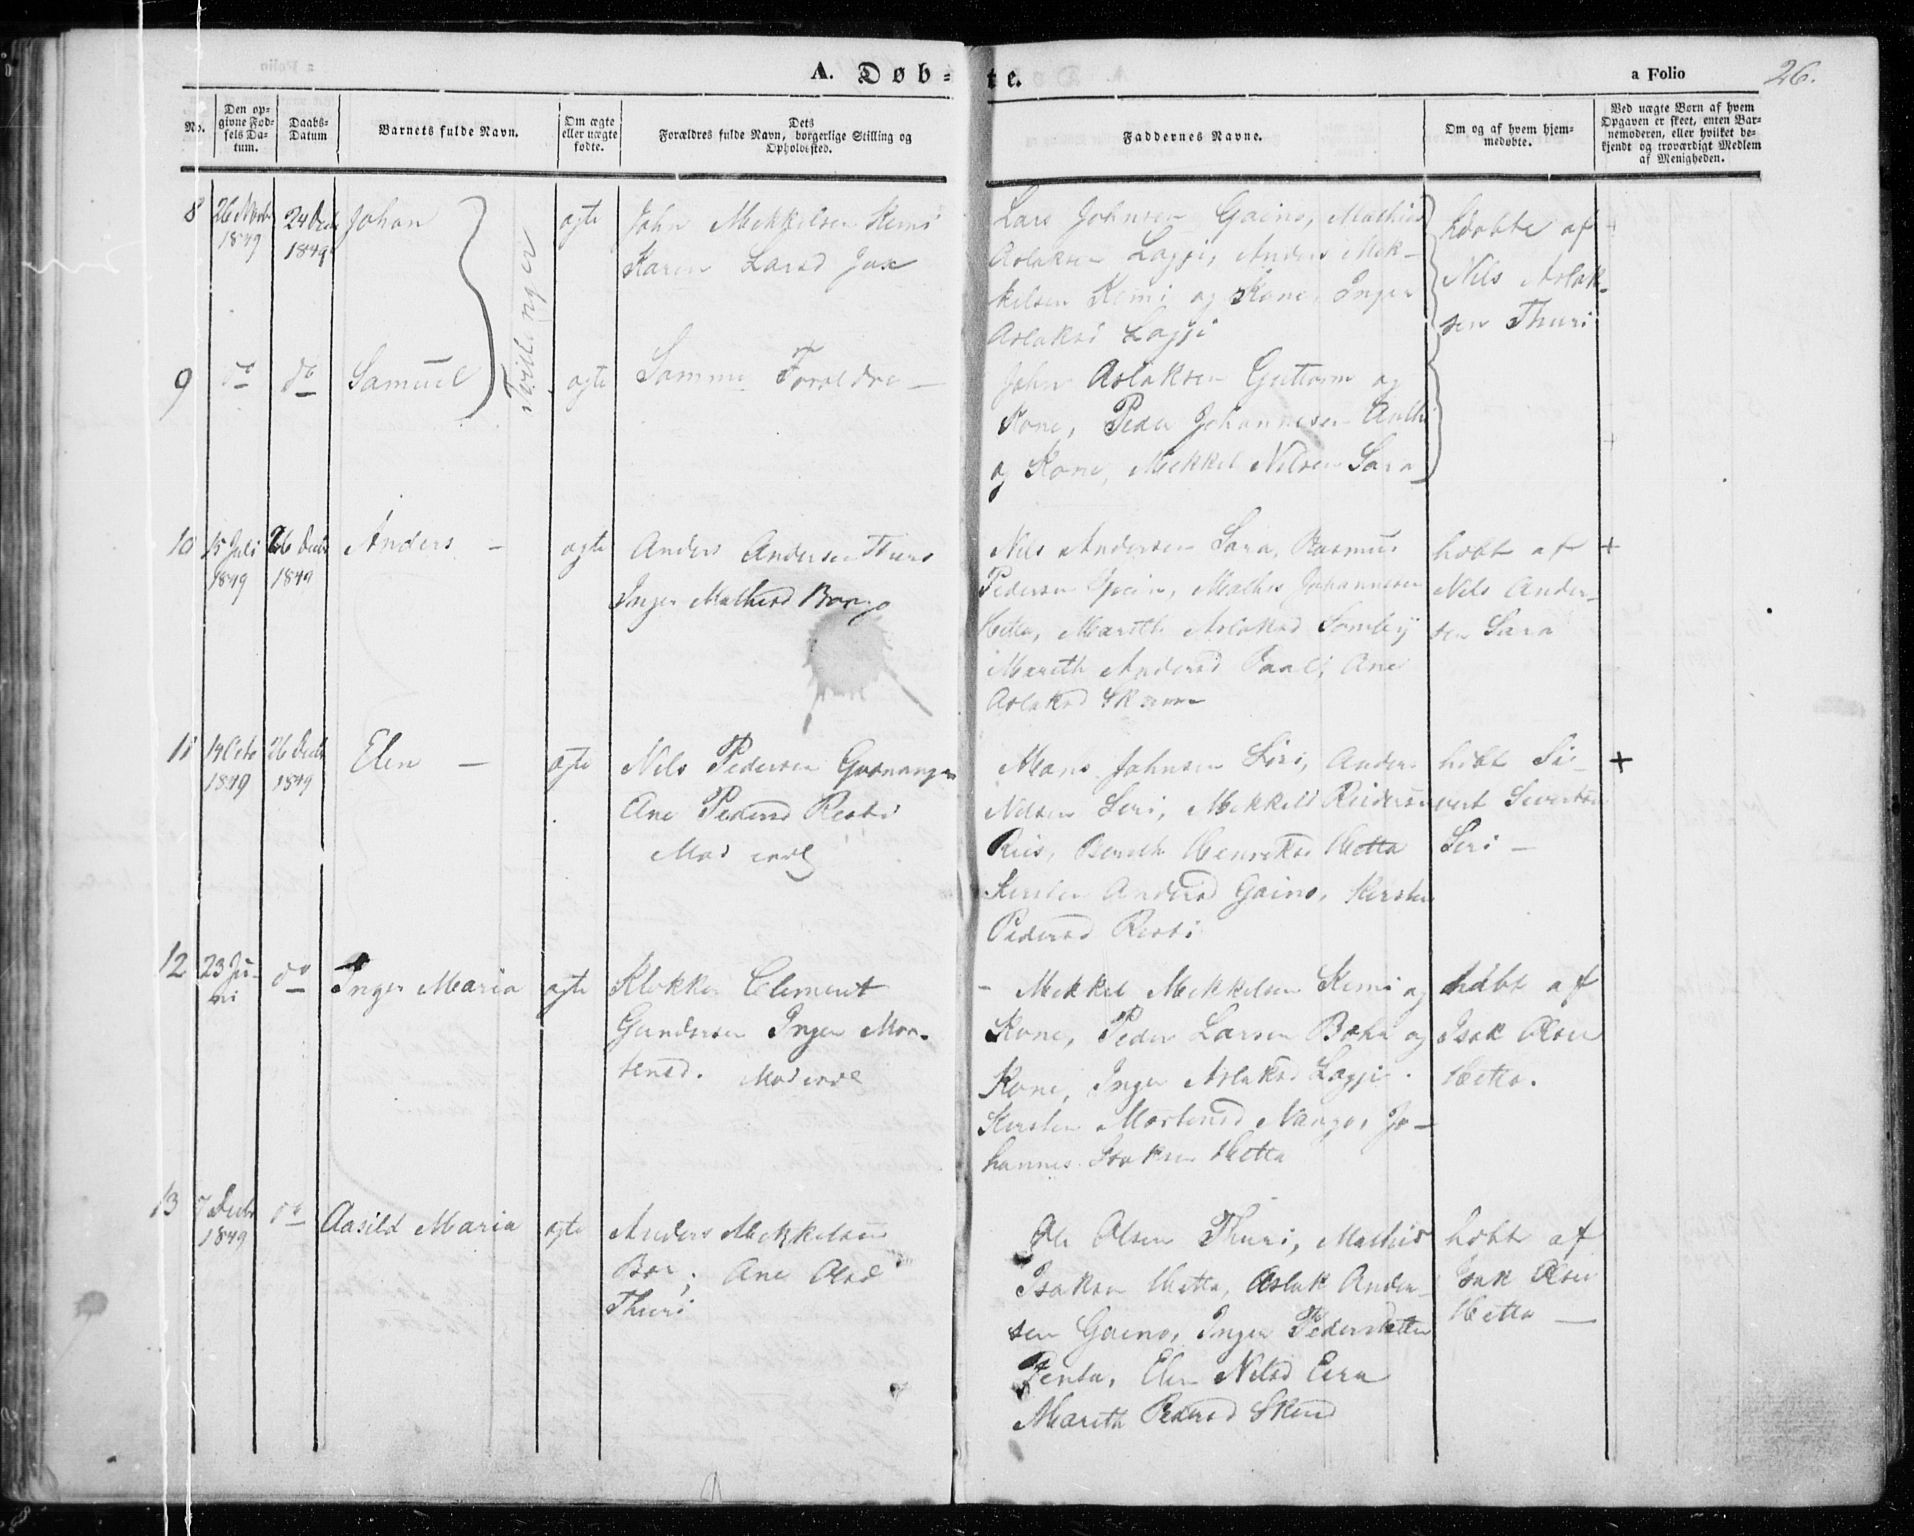 A. Døb-
te.
a Folio
26.
No.
Den op-
givne Fød-
sels Da-
tum.
Daabs-
Datum
Barnets fulde Navn.
Om ægte
eller uægte
fødte.
Dets
Forældres fulde Navn, borgerlige Stilling og
Opholdssted.
Faddernes Navne.
Om og af hvem hjem-
medøbte.
Ved uægte Børn af hvem
Opgaven er skeet, enten Bar-
nemoderen, eller hvilket be-
kjendt og troværdigt Medlem
af Menigheden.
8
26 Novb
1849
24 Decb
1849
Johan
Tvillinger
ægte
John Mekkelsen Kemi
Karen Larsd Jux
Lars Johnsen Gaino, Mathis
Aslaksen Lagji, Anders Mek-
kelsen Kemi og Kone, Inger
Aslaksd Lagji
hdøbte af
Nils Aslak-
sen Thuri
9
do
do
Samuel
ægte
Samme Forældre
John Aslaksen Guttorm og
Kone, Peder Johannesen
og Kone, Mekkel Nilsen Sara
10
15 Juli
1849
26 Decb
1849
Anders
ægte
Anders Andersen Thuri
Inger Mathisd
Nils Andersen Sara, Rasmus
Pedersen Spein, Mathis Johannesen
Hetta, Marith Aslaksd Somby
Marith Andersd Ane
Aslaksd Skum
hdbt af
Nils Ander-
sen Sara
+
11
14 Octb
1849
26 Decb
1849
Elen
ægte
Nils Pedersen Qvænangen
Ane Pedersd Resti
Mod indl
Mons Johnsen Siri, Anders
Nilsen Siri, Mekkel Reidersen
Riis, Bereth Henriksd Hetta
Kirsten Andersd Gaino, Kirsten
Pedersd Resti
hdbt Si-
vert Sivertsen
Siri
+
12
23 Ju-
ni
do
Inger Maria
ægte
Klokker Clement
Gundersen Inger Mor-
tensd. Mod indl
Mekkel Mekkelsen Kemi og
Kone, Peder Larsen og
Kone, Inger Aslaksd Lagji
Kirsten Mortensd Nango, Jo-
hannes Isaksen Hetta
hdbt af
Isak Olsen
Hetta.
13
7 Decb
1849
do
Aasild Maria
ægte
Anders Mekkelsen
Bær; Ane Olsd
Thuri
Ole Olsen Thuri, Mathis
Isaksen Hetta, Aslak Ander-
sen Gaino, Inger Pedersdatter
Penta, Elen Nilsd Eira
Marith Pedersd Skum
hdbt af
Isak Olsen
Hetta